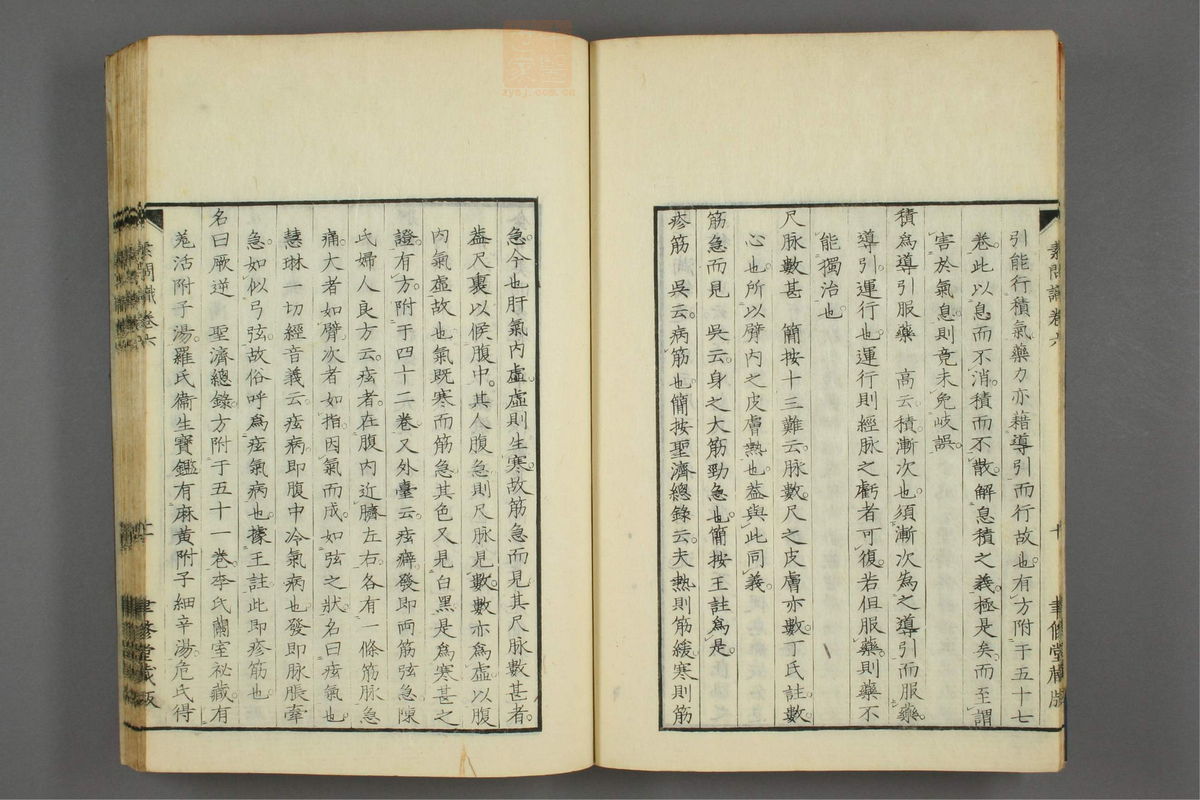 素問識卷六
十
聿修堂藏版
引能行積氣藥力亦藉導引而行故也有方附于五十七
卷此以息而不消積而不散解息積之義極是矣而至謂
害於氣息則竟未免岐誤
積爲導引服藥 高云積漸次也須漸次為之導引而服藥
導引運行也運行則經脉之虧者可復若但服藥則藥不
能獨治也
尺脉數甚 簡按十三難云脉數尺之皮膚亦數丁氏註數
心也所以臂內之皮膚熱也葢與此同義
筋急而見 吳云身之大筋勁急也簡按王註爲是
疹筋 吳云病筋也簡按聖濟總錄云夫熱則筋緩寒則筋
急今也肝氣內虛虛則生寒故筋急而見其尺脉數甚者
葢尺裏以候腹中其人腹急則尺脉見數數亦爲虛以腹
內氣虛故也氣既寒而筋急其色又見白黑是爲寒甚之
證有方附于四十二卷又外臺云痃癖發即兩筋弦急陳
氏婦人良方云痃者在腹內近臍左右各有一條筋脉急
痛大者如臂次者如指因氣而成如弦之狀名曰痃氣也
慧琳一切經音義云痃病即腹中冷氣病也發即脉脹牽
急如似弓弦故俗呼爲痃氣病也據王註此即疹筋也
名曰厥逆 聖濟總錄方附于五十一卷李氏蘭室祕藏有
羌活附子湯羅氏衞生寶鑑有麻黃附子細辛湯危氏得
素問識卷六
十一
聿修堂藏版
zysj.com.cn